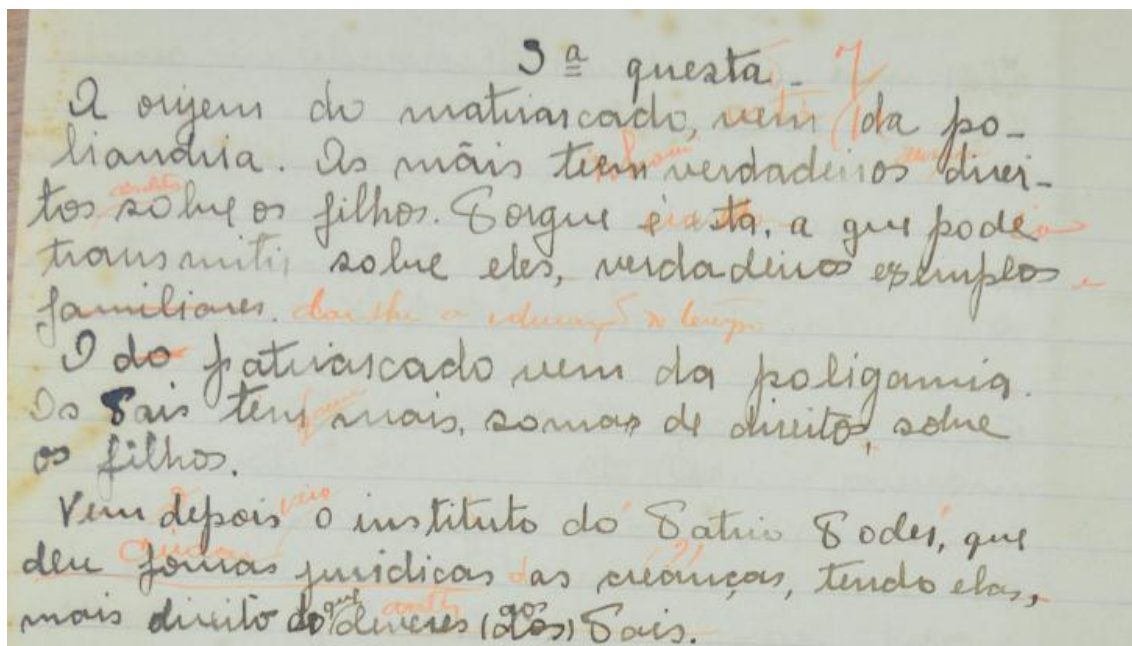 3ª questa. 7
A orijem do matriarcado, vem da po-
liandria. As mãis teem verdadeiros direi-
tos sôbre os filhos. Porque é esta, a que pode
transmitir sobre eles, verdadeiros exemplos
familiares. dar-lhe a educação
O do patriarcado vem da poligamia.
Os Pais tem mais, somas de direitos, sobre
os filhos.
Vem depois veio o instituto do Patrio Poder, que
deu formas juridicas das creanças, tendo elas,
mais direito do que deveres (aos) Pais.